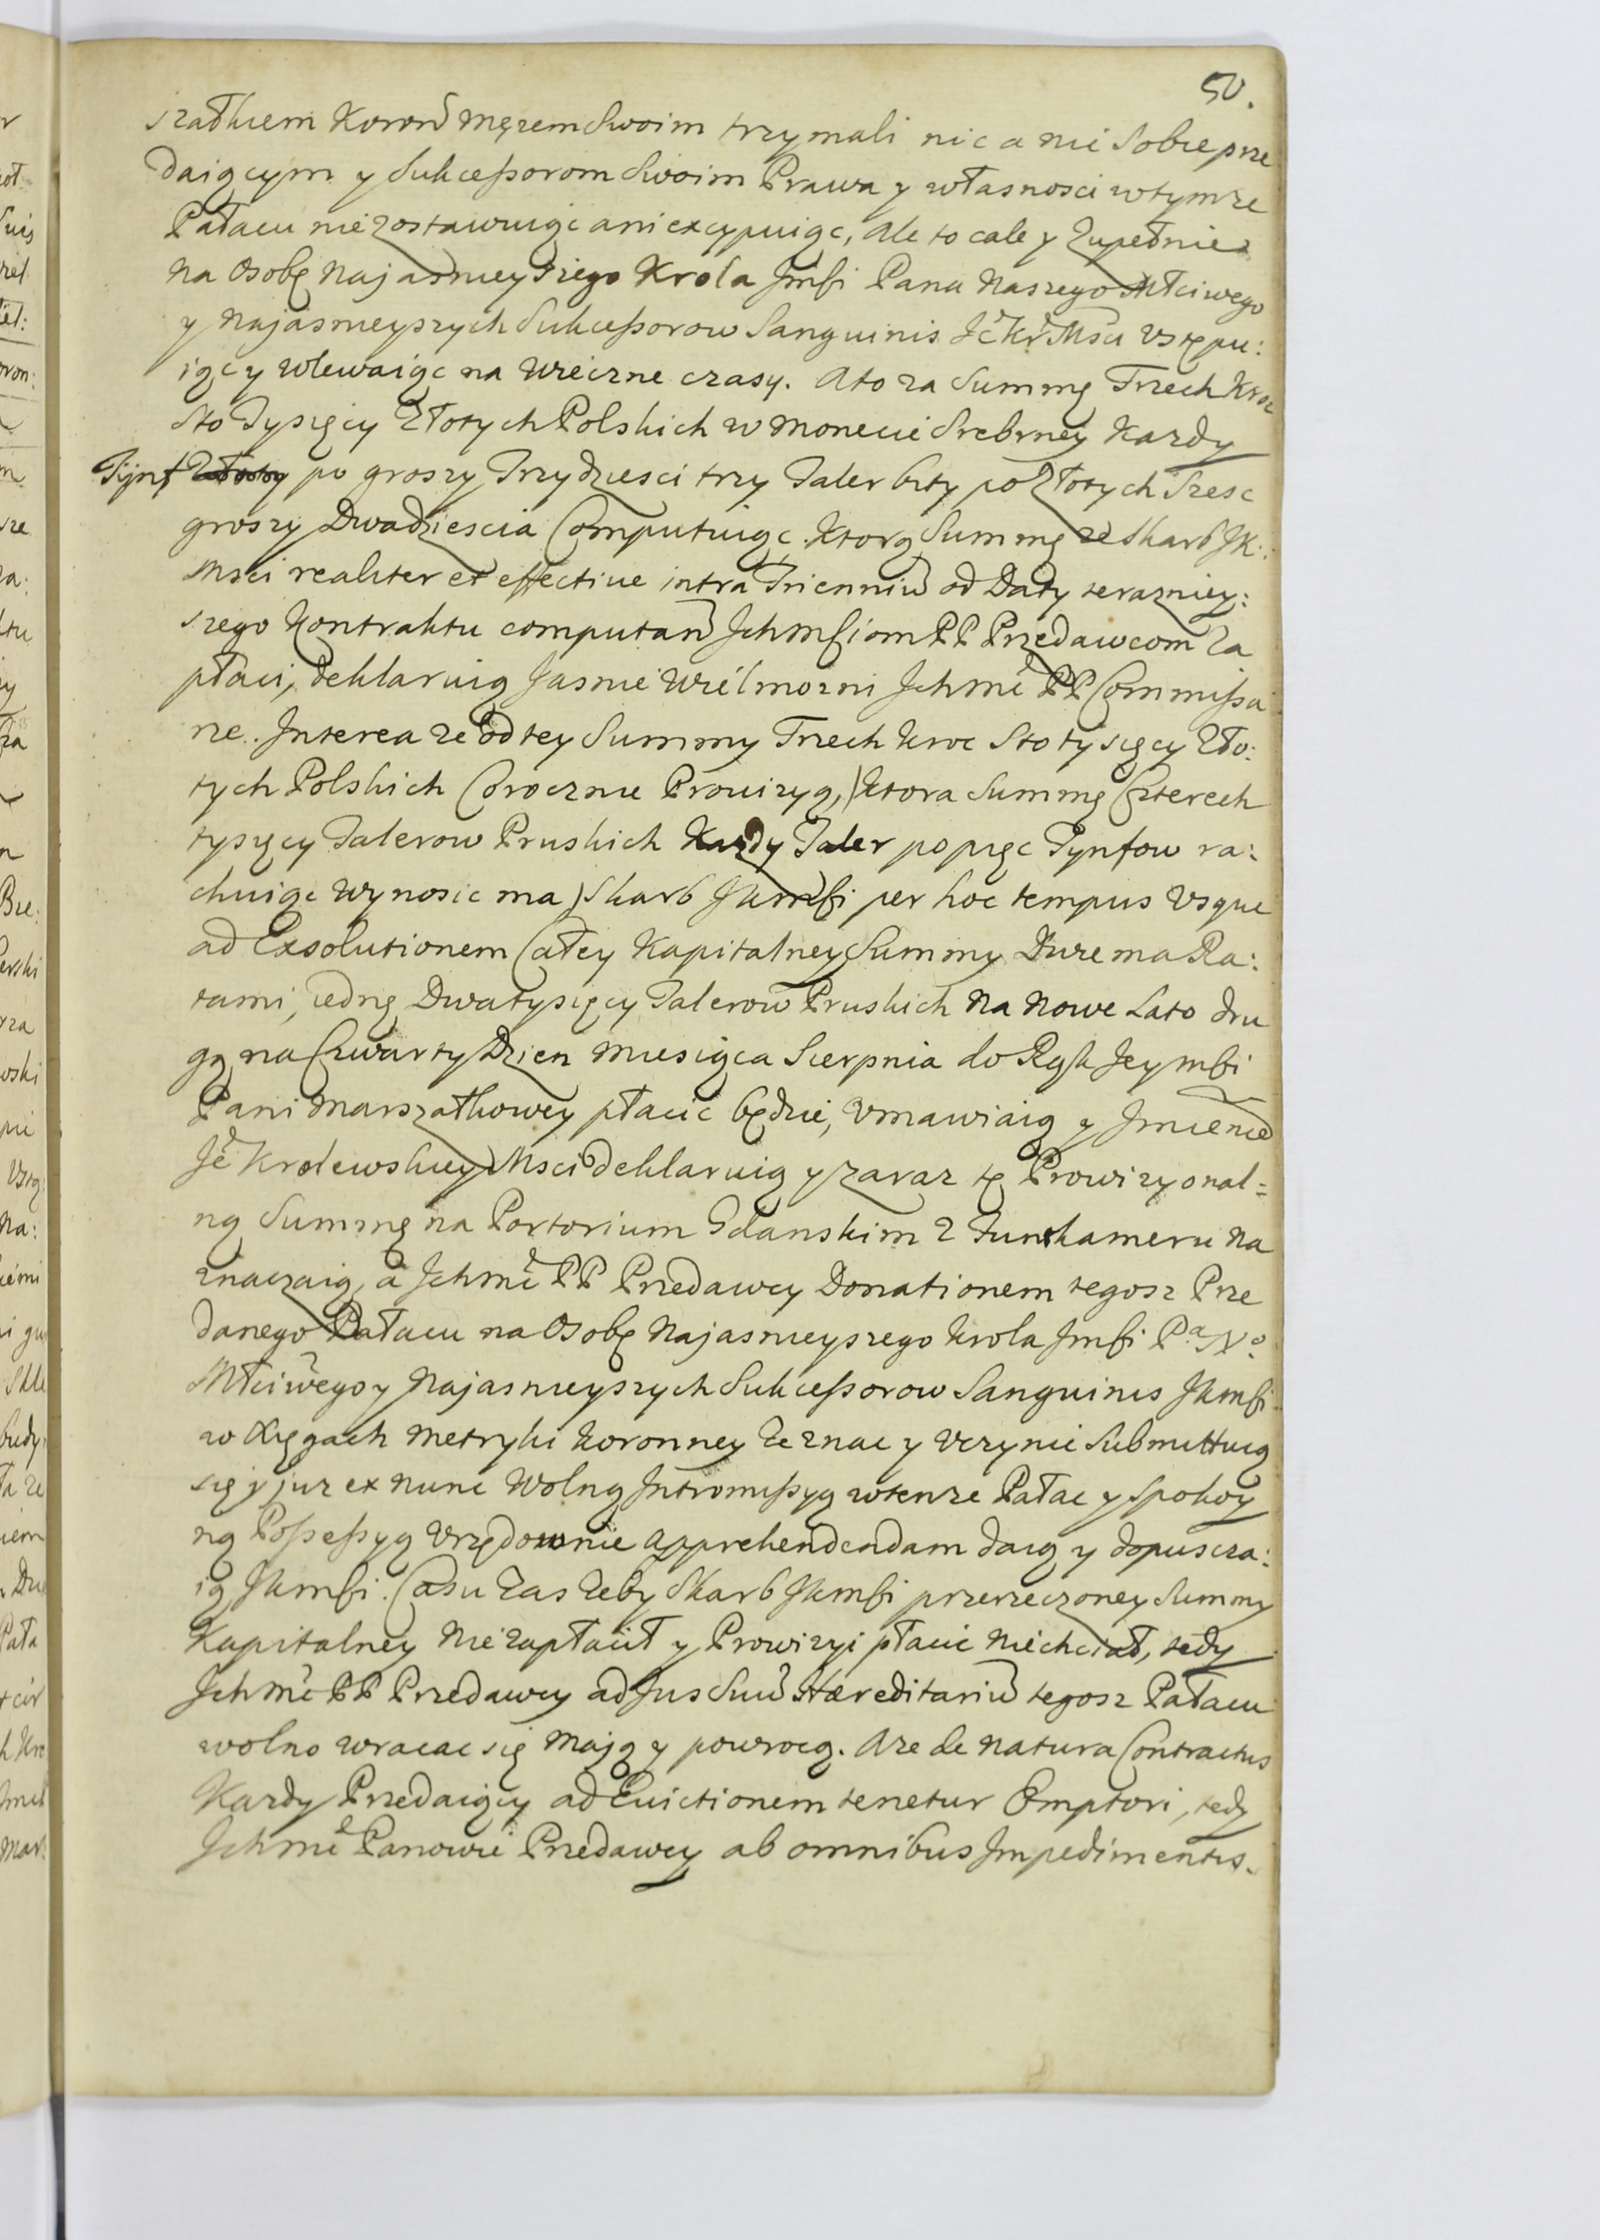 50.
szałkiem Koron̄ mężem Swoim trzymali nic a nic Sobie prze
daiącym y Sukceßorom Swoim Prawa y własnosci w tymze
Pałacu nie zostawuiąc ani excypuiąc, Ale to cale y Zupełnie
na Osobę Najasnieyszego Krola Jmści Pana Naszego Młciwego
y Najasnieyszych Sukceßorow Sanguinis Je͠ Kr͠ Mści Ustępu:
iąc y wlewaiąc na Wieczne czasy. Ato za Summę Trzech Kroć
Sto Tysięcy Złotych Polskich w Monecie Srebrney Kazdy
Tijnf Złoty po groszy Trzydziesci trzy Taler bity po Złotych Szesc
groszy Dwadziescia Computuiąc. Ktorą Summę ze Skarb JK:
Msci realiter et effective intra Trienniū od Daty terazniey:
szego Kontraktu computan̄ Jchmściom PP Przedawcom Za
płaci, deklaruią Jasnie Wielmozni Jchmć PP Commißa
rze. Interea ze od tey Summy Trzech kroc Sto tysięcy Zło:
tych Polskich Corocznie Prowizyą, (ktora Summę Czterech
tysięcy Talerow Pruskich Kazdy Taler po pięc Tynfow ra:
chuiąc wynosic ma) Skarb Jkmści per hoc tempus Usque
ad Exsolutionem Całey Kapitalney Summy Dwiema Ra:
tami, iedną Dwa tysięcy Talerow Pruskich Na Nowe Lato dru
gą na Czwarty Dzien Miesiąca Sierpnia do Rąk Jeymści
Pani Marszałkowey płacic będzie, Umawiaią y Jmienie͠
Je͠ Krolewskiey Msci deklaruią y zaraz tę Prowizyonal=
ną Summę na Portorium Gdanskim z Funkameru Na
znaczaią, a Jchmć PP Przedawcy Donationem tegosz Prze
danego Pałacu na Osobę Najasnieyszego Krola Jmści Pa No.
Młciwego y Najasnieyszych Sukceßorow Sanguinis Jkmści
w Xięgach Metryki Koronney Zeznac y Uczynic Submittuią
się y juz ex nunc Wolną Intromißyą w tenze Pałac y Spokoy
ną Poßeßyą Urzędownie apprehendendam daią y dopuscza:
ią Jkmści. Casu Zas Zeby Skarb Jkmści przerzeczoney Summy
Kapitalney Nie zapłacił y Prowizyi płacic Niechciał, tedy
Jchmć PP Przedawcy ad Jus Suū Hæreditariū tegosz Pałacu
wolno wracac się Mają y powrocą. Aze de Natura Contractus
Kazdy Przedaiący ad Evictionem tenetur Emptori, tedy
Jchmć Panowie Przedawcy ab omnibus Impedimentis.